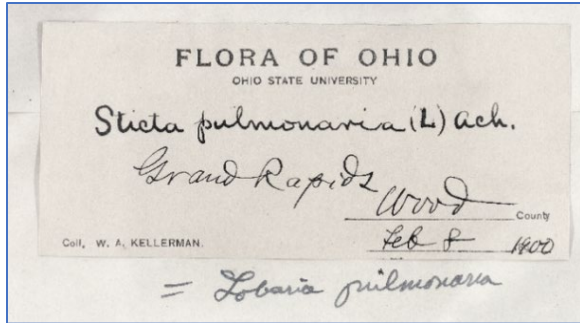 FLORA OF OHIO
OHIO STATE UNIVERSITY
Sticta pulmonaria (L) Ach.
Grand Rapids
Wood County
Coll. W. A. KELLERMAN. Feb 8 1900
= Lobaria pulmonaria